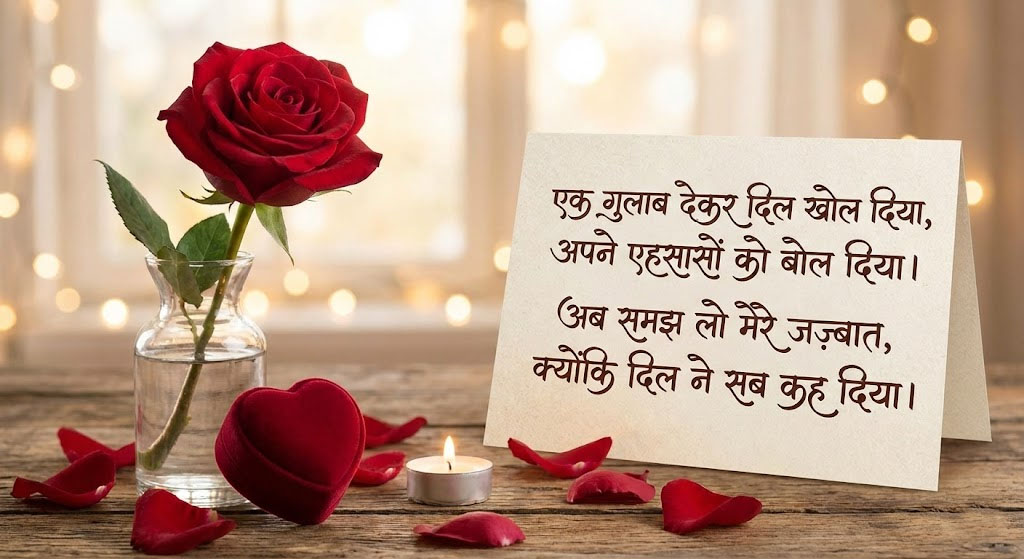 एक गुलाब देकर दिल खोल दिया,
अपने एहसासों को बोल दिया।
अब समझ लो मेरे जज़्बात,
क्योंकि दिल ने सब कह दिया।